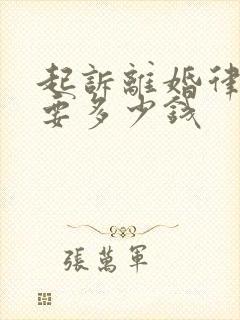 起訴離婚律
要多少錢
張萬軍